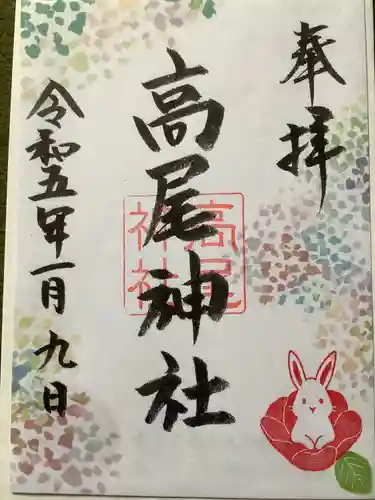 奉拝
高尾神社
高尾
神社
令和五年一月九日